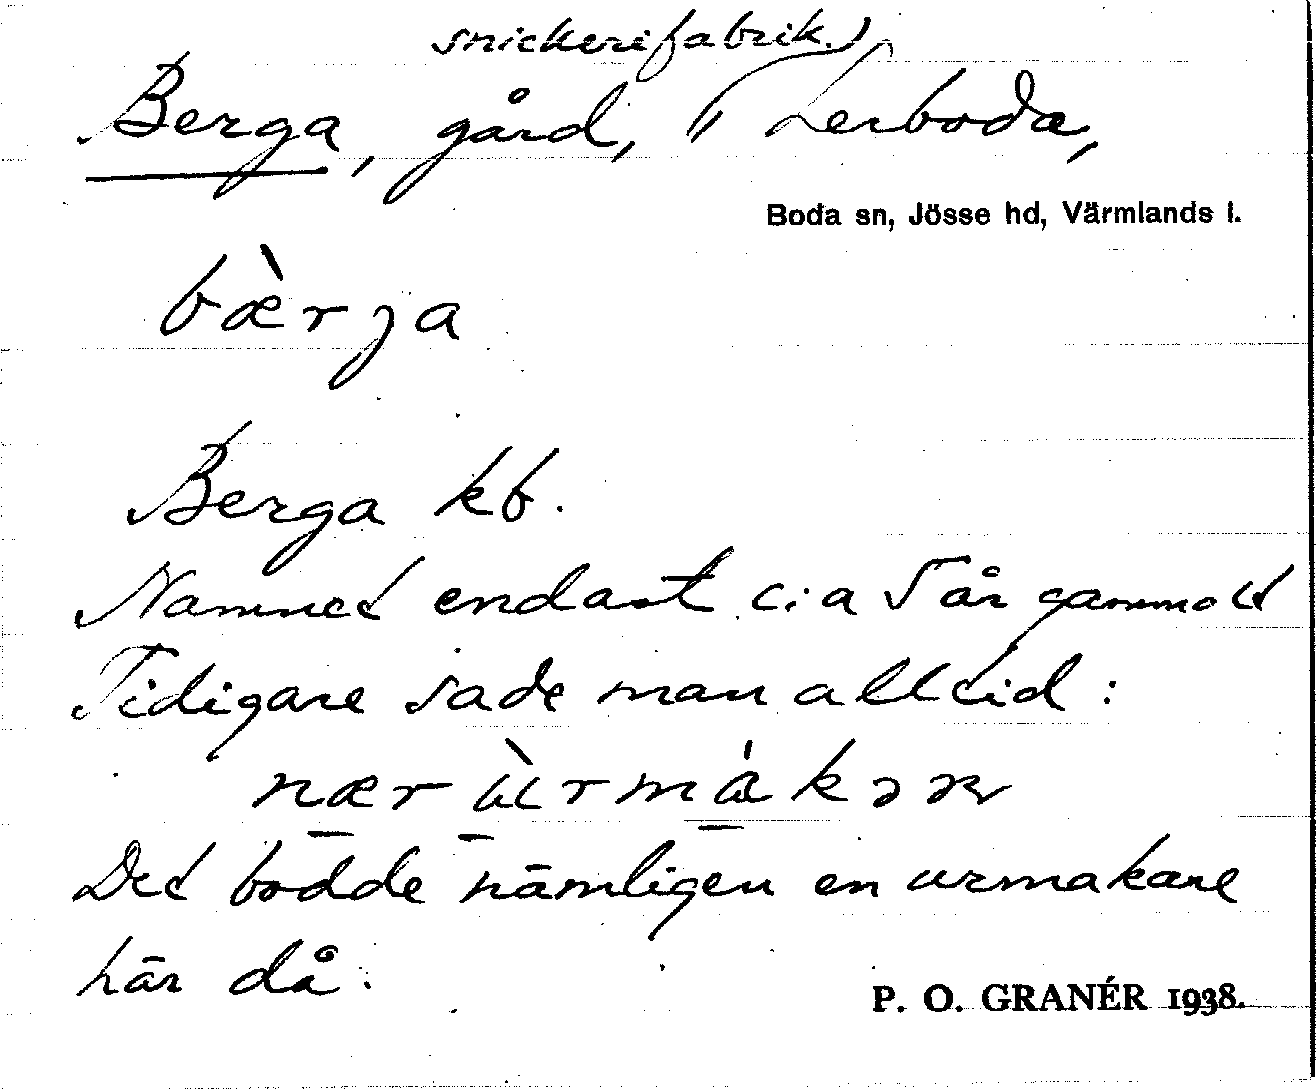 snickerifabrik.)
Berga, gård, (i Lerboda,
Boda sn, Jösse hd, Värmlands l.
bæ̀rja
Berga kb.
Namnet endast c:a 5 år gammalt
Tidigare sade man alltid:
nær ùrmák
Det bodde nämligen en urmakare
här då.
P. O. GRANÉR 1938.